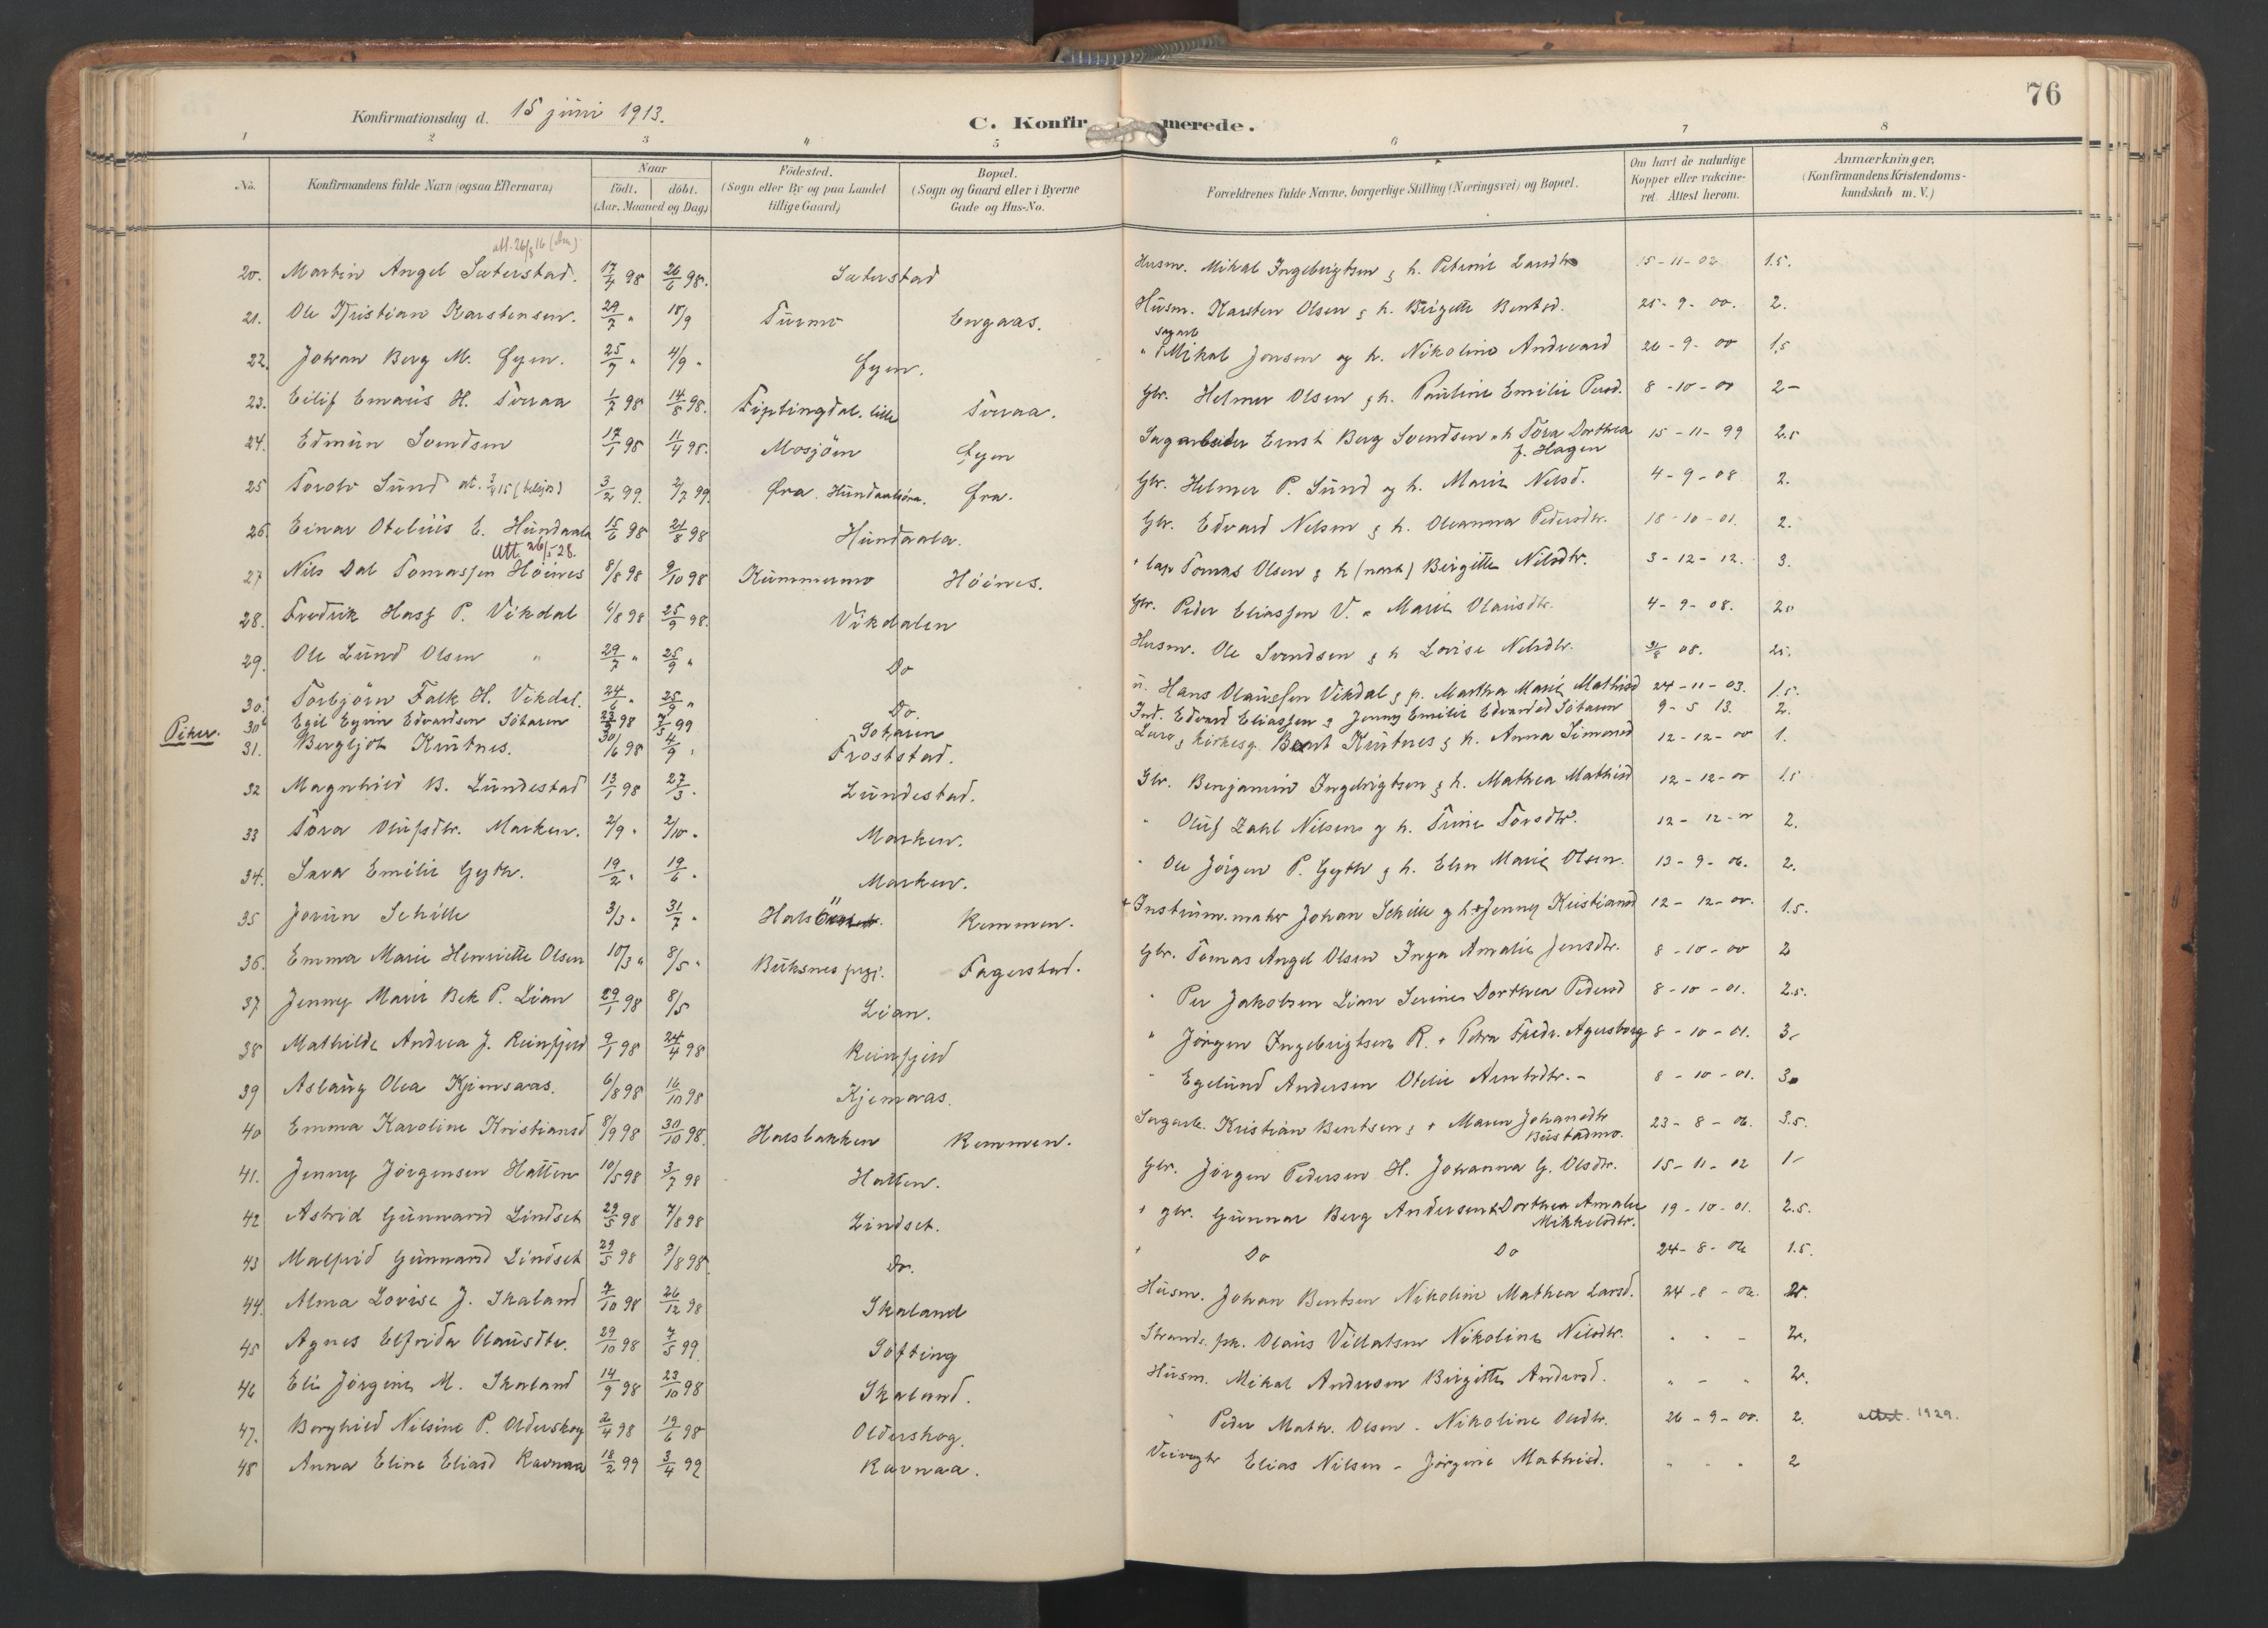 76
Konfirmationsdag d. 15 juni 1913.
C. Konfirmerede.
1 2 3 4 5 6 7 8
No. Konfirmandens fulde Navn (ogsaa Efternavn) Naar født. døbt. (Aar, Maaned og Dag) Fødested. (Sogn eller By og paa Landet tillige Gaard) Bopæl. (Sogn og Gaard eller i Byerne Gade og Hus-No. Forældrenes fulde Navne, borgerlige Stilling (Næringsvei) og Bopæl. Om havt de naturlige Kopper eller vakcineret. Attest herom. Anmærkninger, (Konfirmandens Kristendomskundskab m. V.)
20. Martin Angel Sæterstad. 17/4 98 26/6 98. Sæterstad Husm. Mikal Ingebrigtsen & h. Petrine Larsdtr 15-11-02 1.5.
21. Ole Kristian Karstensen. 29/7 " 18/9 Turmo Engaas. Husm. Karsten Olsen & h. Birgitte Bentsd. 25-9-00. 2.
22. Johan Berg M. Øyen. 25/7 " 4/9 " Øyen. " Sagarb Mikal Jensen og h. Nikoline Andreasd 26-9-00 1.5
23. Eilif Emaus H. Toraa 1/7 98 14/8 98. Fiplingdal. lille Toraa. Gbr. Helmer Olsen & h. Pauline Emilie Persd. 8-10-00 2-
24. Edmun Svendsen 17/1 98 11/4 98. Mosjöen Øyen Sagarbeider Ernst Berg Svendsen & h Tora Dorthea f. Hagen 15-11-99 2.5
25 Torolv Sund 3/2 99. 2/7 99 Øra. Øra. Gbr. Helmer P. Sund og h. Marie Nilsd. 4-9-08 2.
26. Einar Otelius E. Hundaala 15/6 98 21/8 98 Hundaala. Gbr. Edvard Nilsen & h. Oleanna Pedersdtr. 18-10-01. 2.
Att. 26/5 28.
27 Nils Dal Tomassen Höines 8/8 98 9/10 98 Kummermo Höines. + lap Tomas Olsen & h (nord) Birgitte Nilsdtr. 3-12-12. 3.
28. Fredrik Hasf P. Vikdal 6/8 98 25/9 98. Vikdalen Gbr. Peder Eliassen V. " Marie Olausdtr. 4-9-08.
29. Ole Lund Olsen " 29/7 " 25/9 " Do Husm. Ole Svendsen & h Lovise Nilsdtr. 08.
30. Torbjörn Falk H. Vikdal. 24/6 " 25/9 " Do. " Hans Olaussen Vikdal & h. Martha Marie Mathisd 24-11-03. 1.5.
30b Egil Eyvin Edvardsen Söharen 98 99 Soharen Ind. Edvard Eliassen & Jenny Emilie Edvardsd Söharen 9-5 13. 2.
Piker.
31. Bergljot Krutnes. 30/6 98 4/9 " Froststad. Lærer & kirkesg. Bernt Krutnes & h. Anna Simonsd 12-12-00 1.
32 Magnhild B. Lundestad 13/1 98 27/3 . Lundestad. Gbr. Benjamin Ingebrigtsen & h. Mathea Mathisd 12-12-00 1.5
33 Tora Olufsdtr. Marken. 2/9 " 2/10 " Marken. " Oluf Zahl Nilsen og h. Trine Torsdtr. 12-12-00 2.
34. Sara Emilie Gyth. 19/2 " 19/6 " Marken. " Ole Jörgen P. Gyth & h. Elen Marie Olsen. 13-9-06. 2.
35 Jorun Schille 3/3 " 31/7 " Remmen. + Instrum.maker Johan Schille og h + Jenny Kristiansd 12-12-00. 1.5.
36. Emma Marie Henriette Olsen 10/3 " 8/5 " Buksnes prgj. Fagerstad. Gbr. Tomas Angel Olsen Inga Amalie Jensdtr. 8-10-00 2
37 Jenny Marie Bek P. Lian 29/1 98 8/5 Lian. " Per Jakobsen Lian Serine Dorthea Pedersd 8-10-01. 2.5.
38 Mathilde Andrea J. Reinfjeld 9/1 98 24/4 98 Reinfjeld " Jörgen Ingebrigtsen R. + Petra Fredr. Agersborg 8-10-01. 3-
39 Aslaug Olea Kjemsaas. 6/8 98 16/10 98 Kjemsaas. " Egelund Andersen Otelie Arntsdtr. - 8-10-01. 3
40 Emma Karoline Kristiansd 8/9 98 30/10 98. Halsbakken Remmen. Sagarb. Kristian Bentsen & + Maren Johansdtr Bustadmo. 23-8-06. 3.5.
41. Jenny Jörgensen Hatten 10/5 98 3/7 98 Hatten. Gbr. Jörgen Pedersen H. Johanna G. Olsdtr. 15-11-02 1-
42 Astrid Gunnarsd Lindset 29/5 98 7/8 98 Lindset. + gbr. Gunnar Berg Andersen & Dorthea Amalie Mikkelsdtr. 19-10-01. 2.5.
43 Malfrid Gunnarsd Lindset 29/5 98 7/8 98. Do. + Do Do 24-8-06 1.5.
44. Alma Lovise J. Skaland 7/10 98 26/12 98 Skaland Husm. Johan Bentsen Nikoline Mathea Larsd. 24-8-06.
45 Agnes Elfrida Olausdtr. 29/10 98 7/5 99. Söfting Strands. pk. Olaus Villatsen Nikoline Nilsdtr. " " - 2.
46 Eli Jörgine M. Skaland 14/9 98 23/10 98 Skaland. Husm. Mikal Andersen Birgitte Andersd. " - " 2.
47. Borghild Nilsine P. Olderskog 2/4 98 19/6 98 Olderskog. " Peder Math. Olsen - Nikoline Olsdtr. 26-9-00. 2. attest. 1929.
48 Anna Eline Eliasd Ravnaa 18/2 99 3/4 99 Ravnaa. Veivogter Elias Nilsen - Jörgine Mathisd. " " " 2